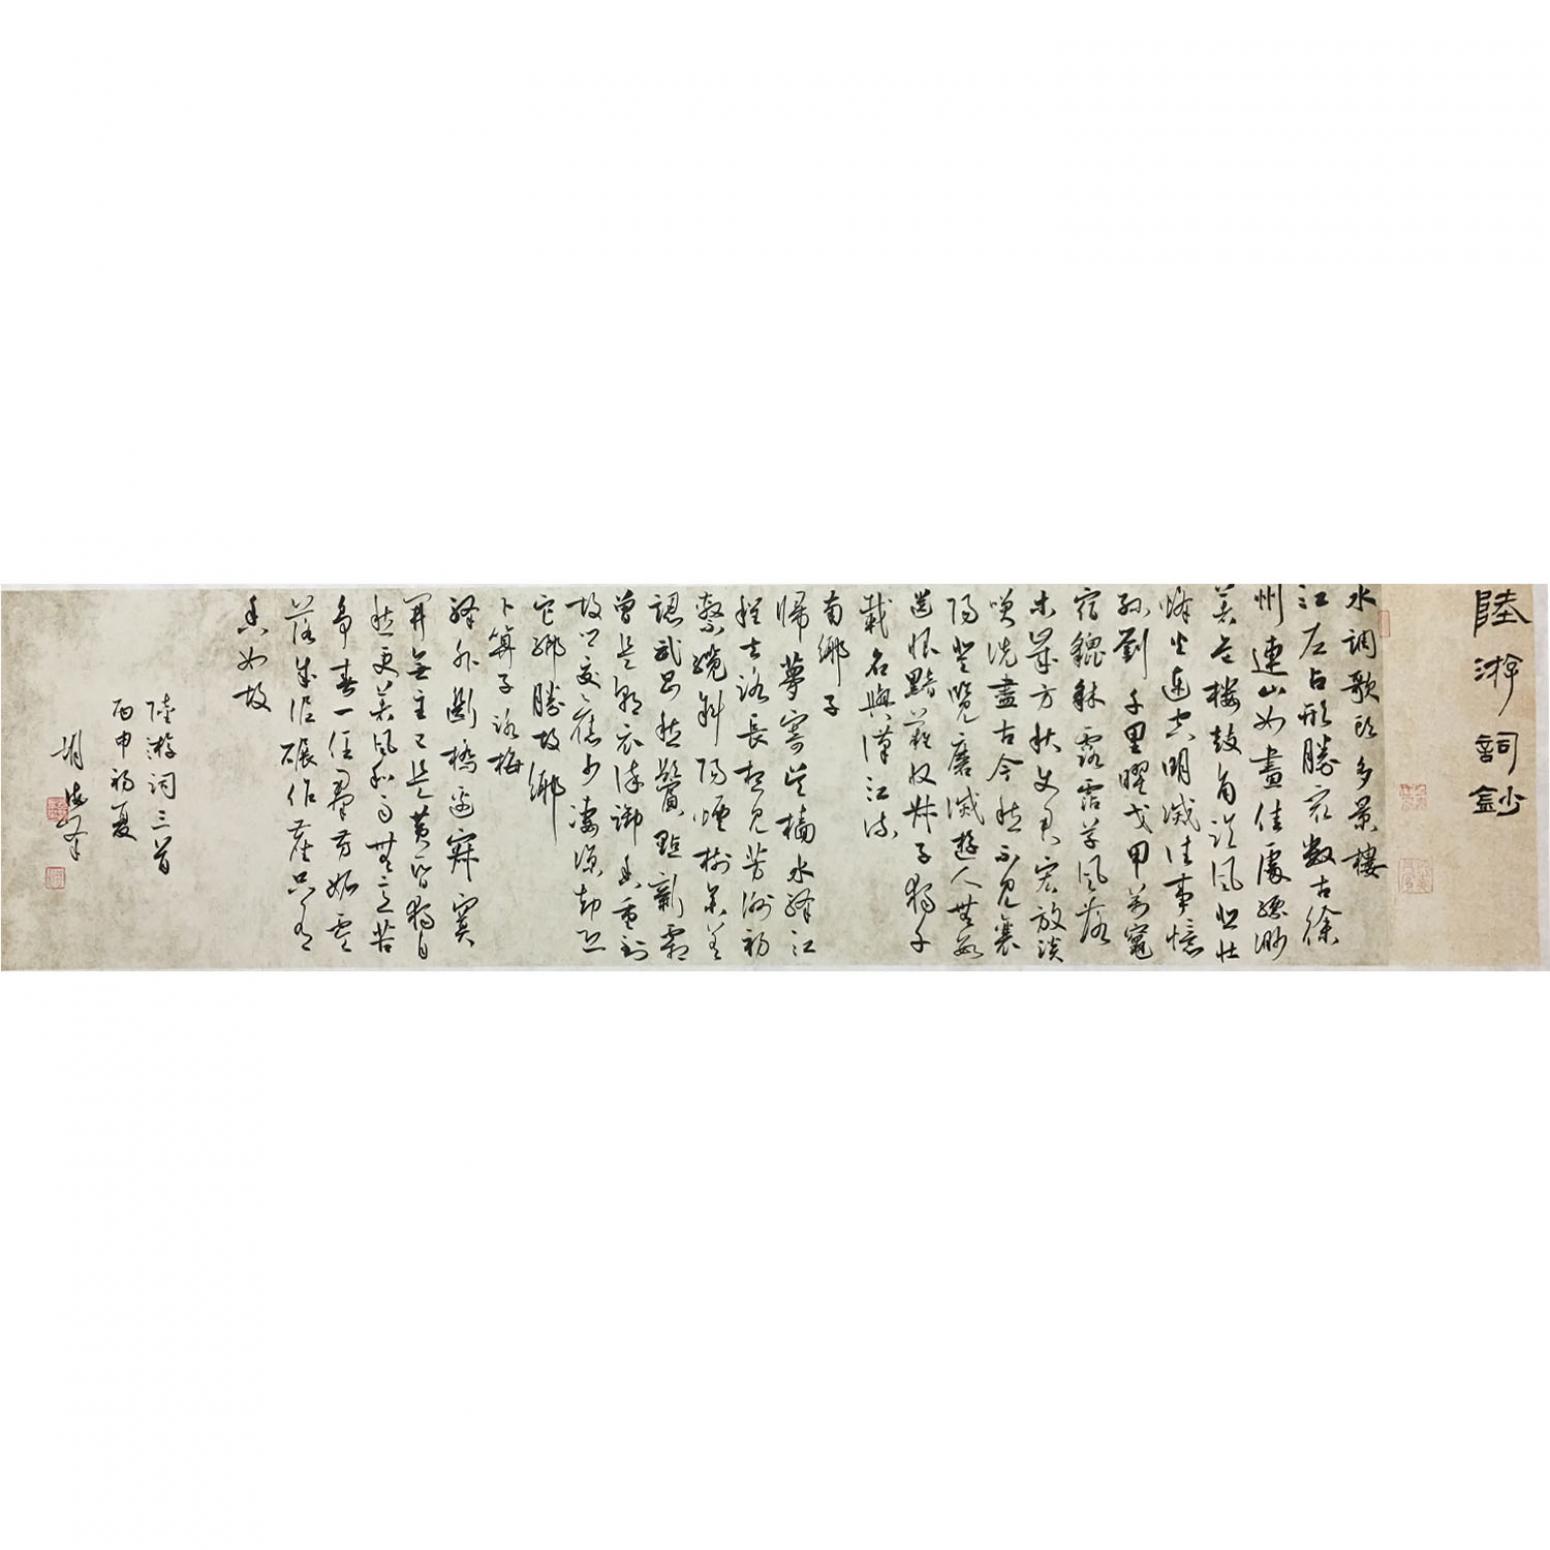 陸游詞鈔
水調歌頭多景樓
江左占形勝最數古徐
州連山如畫佳處縹渺
著危樓鼓角臨風悲壯
烽火連空明滅往事憶
孫劉千里曜戈甲萬竈
宿貔貅露霑草風落
木歲方秋使君宏放談
笑洗盡古今愁不見襄
陽登覽磨滅遊人無數
遺恨黯難收叔子獨千
載名與漢江流
南鄉子
歸夢寄吳檣水驛江
程去路長想見芳洲初
繫纜斜陽煙樹參差
認武昌愁鬢點新霜
曾是朝衣染御香重到
故鄉交舊少淒涼卻恐
它鄉勝故鄉
卜算子詠梅
驛外斷橋邊寂寞
開無主已是黃昏獨自
愁更著風和雨無意苦
爭春一任羣芳妬零
落成泥碾作塵只有
香如故
陸游詞三首
丙申初夏